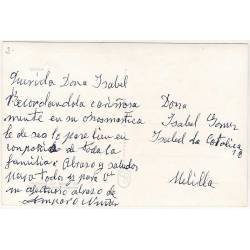 2-
Querida Dona Isabel
Recordandola cariñosa
mente en su onosmastica
le deseo lo pase bien en
conpañia de toda la
familia Abrazo y saludos
para todos y para Vd
mi afectuoso abraso de
Amparo
Dona
Isabel Gomez
Isabel la Catolica
18
Melilla